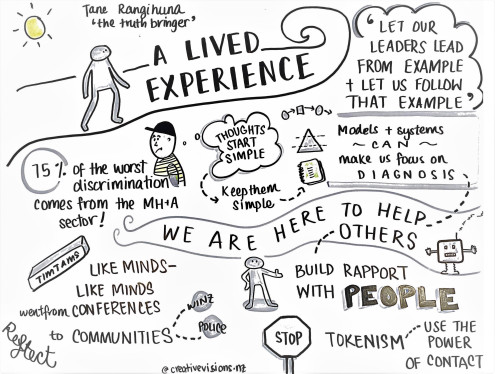 Tane Rangihuna
"the truth bringer"
A LIVED
EXPERIENCE
"LET OUR
LEADERS LEAD
FROM EXAMPLE
+ LET US FOLLOW
THAT EXAMPLE"
THOUGHTS
START
SIMPLE
Keep them
simple
Models + systems
~ CAN ~
make us focus on
DIAGNOSIS
75% of the worst
discrimination
comes from the MH+A
sector!
WE ARE HERE TO HELP
OTHERS
TIMTAMS
LIKE MINDS-
LIKE MINDS
went from CONFERENCES
to COMMUNITIES
WINZ
POLICE
Reflect
BUILD RAPPORT
WITH PEOPLE
STOP
TOKENISM
USE THE
POWER
OF CONTACT
@creativevisions.nz